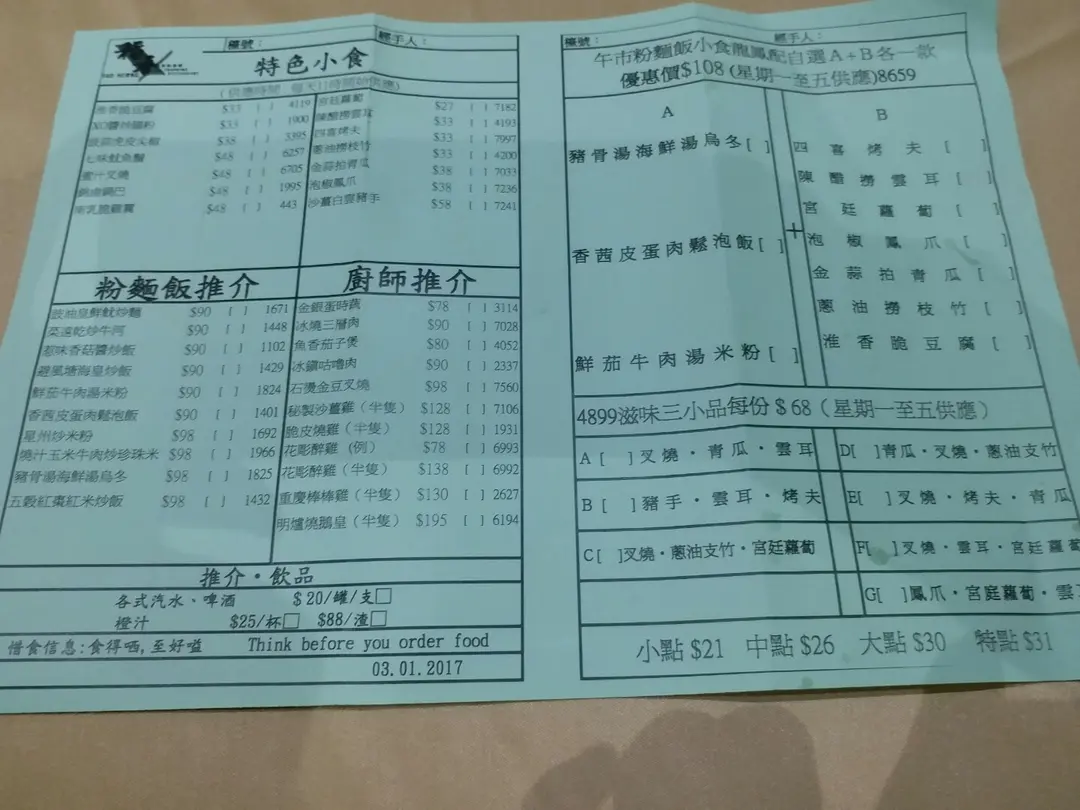 檯號： 經手人：
特色小食
(供應時間：每天11時開始供應)
$33 [ ] 4119
XO醬炒腸粉 $33 [ ] 1900
$38 [ ] 3395
七味魷魚鬚 $48 [ ] 6257
蜜汁叉燒 $48 [ ] 6705
$48 [ ] 1995
南乳脆雞翼 $48 [ ] 443
宮廷蘿蔔 $27 [ ] 7182
陳醋撈雲耳 $33 [ ] 4193
四喜烤夫 $33 [ ] 7997
蔥油撈枝竹 $33 [ ] 4200
金蒜拍青瓜 $38 [ ] 7033
泡椒鳳爪 $38 [ ] 7236
沙薑白雲豬手 $58 [ ] 7241
粉麵飯推介
豉油皇鮮魷炒麵 $90 [ ] 1671
菜遠乾炒牛河 $90 [ ] 1448
惹味香菇醬炒飯 $90 [ ] 1102
避風塘海皇炒飯 $90 [ ] 1429
鮮茄牛肉湯米粉 $90 [ ] 1824
香茜皮蛋肉鬆泡飯 $90 [ ] 1401
星州炒米粉 $98 [ ] 1692
燒汁五米牛肉炒珍珠米 $98 [ ] 1966
豬骨湯海鮮湯烏冬 $98 [ ] 1825
五穀紅棗紅米炒飯 $98 [ ] 1432
廚師推介
金銀蛋時蔬 $78 [ ] 3114
冰燒三層肉 $90 [ ] 7028
魚香茄子煲 $80 [ ] 4052
冰鎮咕嚕肉 $90 [ ] 2337
石燙金豆叉燒 $98 [ ] 7560
秘製沙薑雞（半隻） $128 [ ] 7106
脆皮燒雞（半隻） $128 [ ] 1931
花彫醉雞（例） $78 [ ] 6993
花彫醉雞（半隻） $138 [ ] 6992
重慶棒棒雞（半隻） $130 [ ] 2627
明爐燒鵝皇（半隻） $195 [ ] 6194
推介・飲品
各式汽水、啤酒 $20/罐/支□
橙汁 $25/杯□ $88/渣□
惜食信息:食得哂,至好嗌 Think before you order food
03.01.2017
檯號： 經手人：
午市粉麵飯小食龍鳳配自選A+B各一款
優惠價$108 (星期一至五供應)8659
A
豬骨湯海鮮湯烏冬[ ]
香茜皮蛋肉鬆泡飯[ ]
鮮茄牛肉湯米粉[ ]
+
B
四喜烤夫[ ]
陳醋撈雲耳[ ]
宮廷蘿蔔[ ]
泡椒鳳爪[ ]
金蒜拍青瓜[ ]
蔥油撈枝竹[ ]
淮香脆豆腐[ ]
4899滋味三小品每份＄68（星期一至五供應）
A [ ]叉燒・青瓜・雲耳 D[ ]青瓜・叉燒・蔥油支竹
B [ ]豬手・雲耳・烤夫 E[ ]叉燒・烤夫・青瓜
C[ ]叉燒・蔥油支竹・宮廷蘿蔔 F[ ]叉燒・雲耳・宮廷蘿蔔
G[ ]鳳爪・宮庭蘿蔔・雲
小點 $21 中點 $26 大點 $30 特點 $31